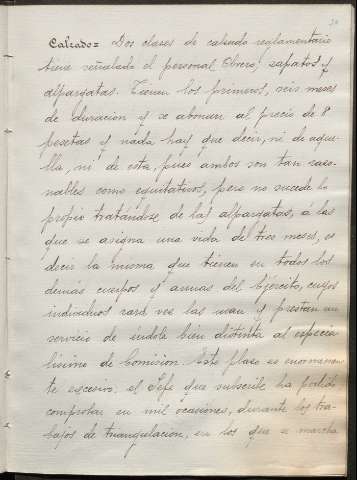 Calzado = Dos clases de calzado reglamentario
tiene señalado el personal Obrero, zapatos y
alpargatas. Tienen los primeros, seis meses
de duracion y se abonan al precio de 8
pesetas y nada hay que decir, ni de aque-
lla, ni de esta, pues ambos son tan razo-
nables como equitativos, pero no sucede lo
propio tratándose de las alpargatas, á las
que se asigna una vida de tres meses, es
decir la misma que tienen en todos los
demás cuerpos y armas del Ejército, cuyos
individuos rara vez las usan y prestan un
servicio de indole bien distinta al especia-
lisimo de Comision. Este plazo es enormemen-
te excesivo. el Jefe que subscribe ha podido
comprobar en mil ocasiones, durante los tra-
bajos de triangulacion, en los que se marcha